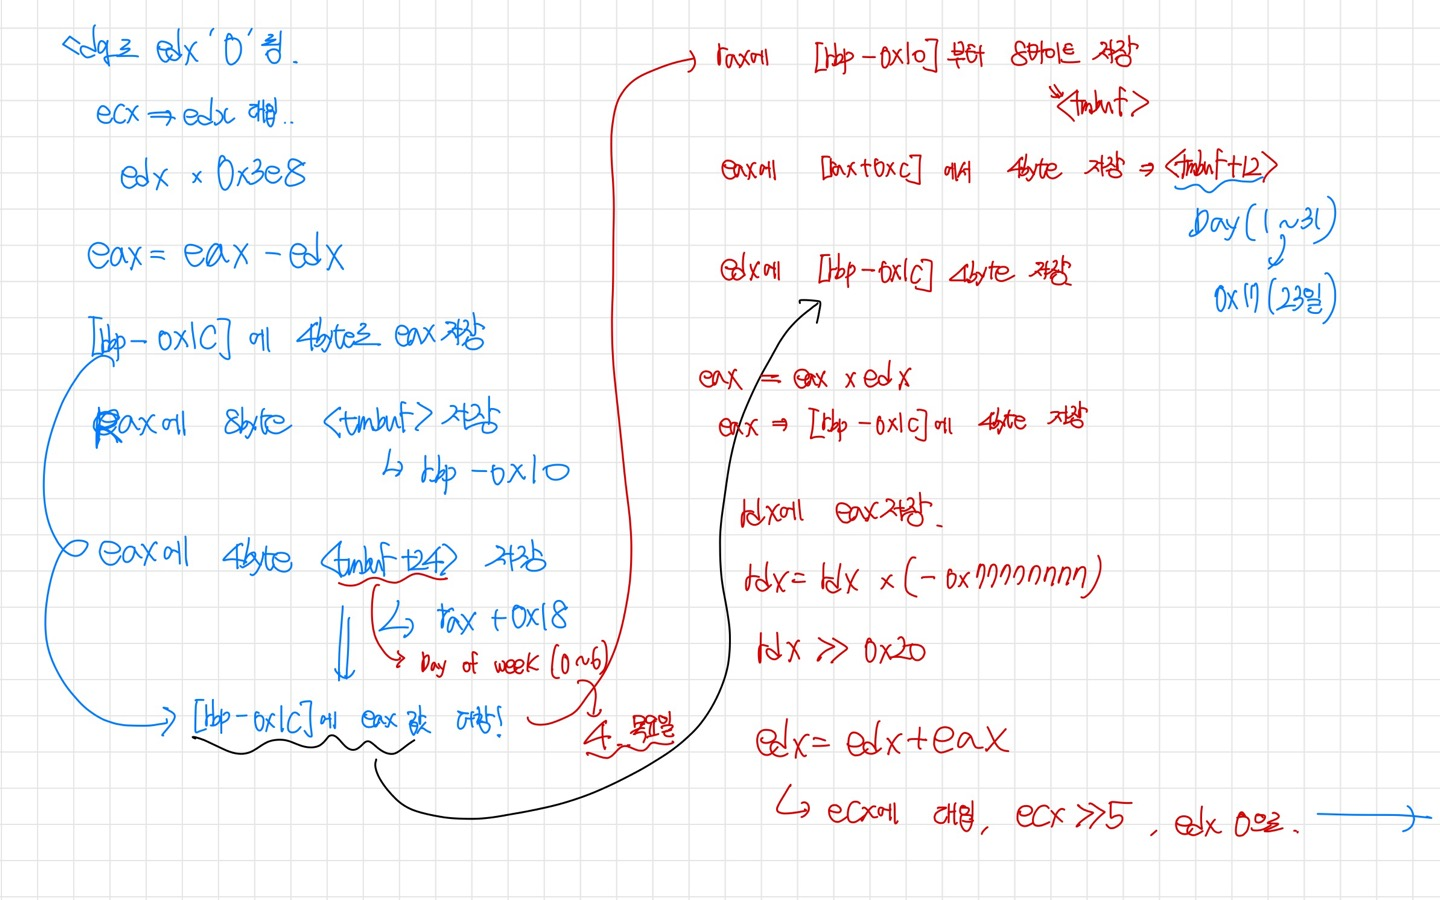 cdq로 edx '0' 됨.
ecx ⇒ edx 대입..
edx × 0x3e8
eax = eax - edx
[rbp - 0x1C] 에 4byte로 eax 저장
Rax에 8byte <tmbuf> 저장
↳ rbp - 0x10
eax에 4byte <tmbuf +24> 저장
↳ rax + 0x18
Day of week (0~6)
[rbp - 0x1C]에 eax 값 저장!
4 목요일
rax에 [rbp - 0x10] 부터 8바이트 저장
<tmbuf>
eax에 [rax+0xC] 에서 4byte 저장 ⇒ <tmbuf+12>
Day (1~31)
0x17 (23일)
edx에 [rbp - 0x1C] 4byte 저장
eax = eax × edx
eax ⇒ [rbp - 0x1C]에 4byte 저장
rdx에 eax 저장.
rdx = rdx × (- 0x77777777)
rdx >> 0x20
edx = edx + eax
↳ ecx에 대입, ecx >> 5 , edx 0으로.